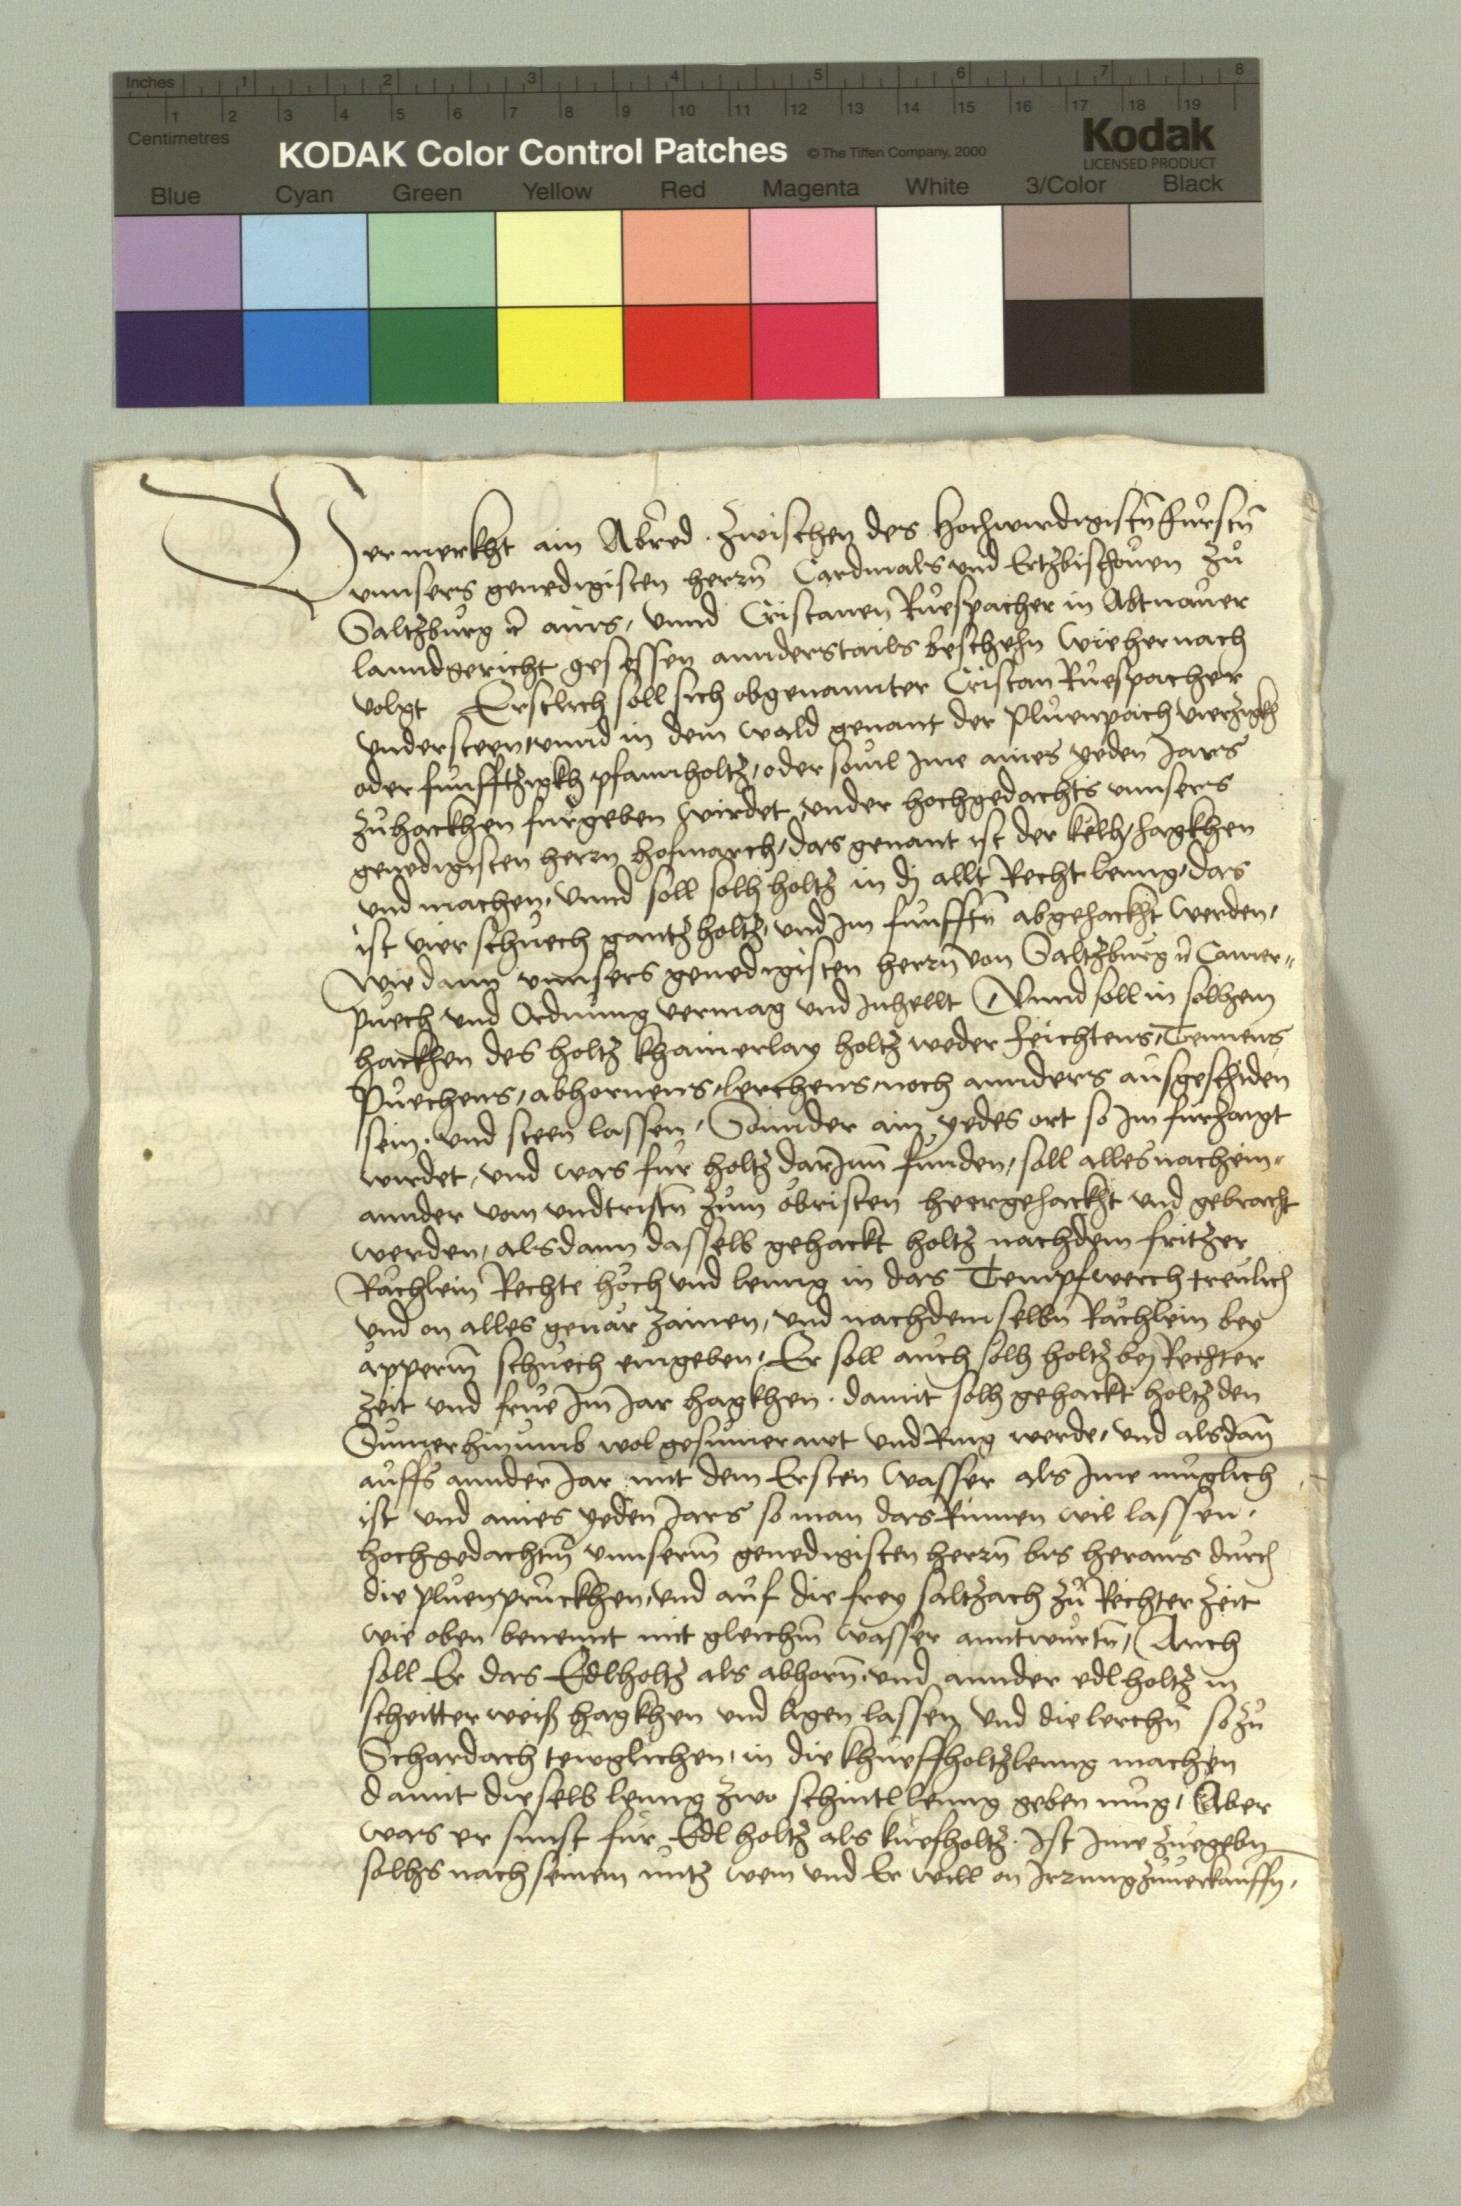 Inches 1 2 3 4 5 6 7 8
Centimetres 1 2 3 4 5 6 7 8 9 10 11 12 13 14 15 16 17 18 19
KODAK Color Control Patches © The Tiffen Company, 2000 Kodak
LICENSED PRODUCT
Blue Cyan Green Yellow Red Magenta White 3/Color Black
Vermerkht ain Abred. zwischen des Hochwirdigistn Fürstn
vnnsers genedigisten herrn Cardinals vnd Ertzbischoven zu
Saltzburg ains, vnnd Cristanen Ruespacher in Abtnawer
lanndgericht gesessen annderstails beschehn wie hernach
volgt Erstlich soll sich obgenannter Cristan Ruespacher
vndersteen, vnnd in dem wald genant der Pluenpach vierzigkh
oder funfftzigkh pfannholtz, oder souil Ime aines yeden Jars
zuhackhen furgeben wirdet, vnder hochgedachts vnnsers
genedigisten herrn hofmarch, das genant ist der kelh, hagkhen
vnd machen, Vnnd soll solh holtz in dj allt Recht leng, das
ist vier schuech gantz holtz, vnd Im funfftn abgehackht werden,
Wie dann vnnsers genedigisten herrn von Saltzburg Camer-
puech vnd Ordnung vermag vnd Innhellt Vnnd soll in solhem
hackhen des holtz khainerlay holtz weder feichtens, Tennens
Puechens, abhornens, lerchens, noch annders ausgeschiden
sein. vnd steen lassen, Sonnder ain yedes ort so Im furzaigt
wirdet, vnd was fur holtz darJnn funden, soll alles nachein-
annder vom vndtristn zum obristen heergehackht vnd gebracht
werden, alsdann dasselb gehackt holtz nachdem fritzer
Rächlein Rechte höch vnd leng in das Tempfwerch treulich
vnd on alles geuär zainen, vnd nachdemselbn Rächlein bey
äpperm schuech eingeben, Er soll auch solh holtz bej Rechter
zeit vnd frue Im Jar hagkhen. damit solh gehackt holtz den
Sumer hinumb wol gesumerawt vnd Ring werde, vnd alsdan
auffs annder Jar mit dem Ersten wasser als Ime muglich
ist vnd aines yeden Jars so man das Rinnen wil lassen.
hochgedachtm vnnserm genedigisten herrn bis heraus durch
die pluenpruckhen, vnd auf die frey saltzach zu Rechter zeit
wie oben benennt mit gleichm wasser anntwurtn, Auch
soll Er das Edlholtz als abhorn, vnd annder edl holtz in
scheitter weiß hagkhen vnd ligen lassen vnd die lerchn so zu
Schardach teuglichen, in die khueffholtzleng machen
damit dieselb leng zwo schintlleng geben mug, Aber
was er sunst fur Edl holtz als kuefholtz. Ist Ime zuegebn
solhs nach seinem nutz wem vnd Er will on Irrung zuuerkauffn.